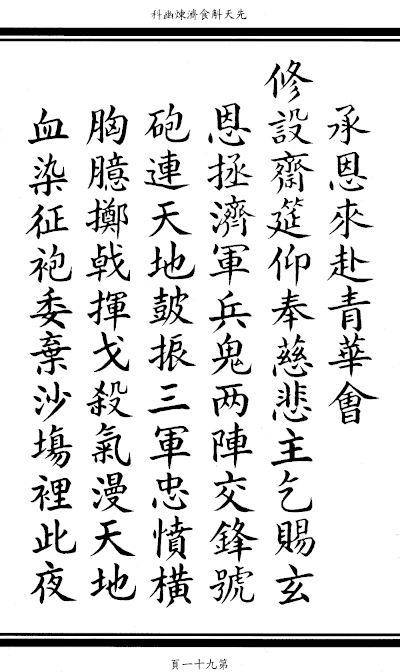 先天斛食濟煉幽科
承恩來赴青華會
修設齋筵仰奉慈悲主乞賜玄
恩拯濟軍兵鬼两陣交鋒號
砲連天地皷振三軍忠憤橫
胸臆擲戟揮戈殺氣漫天地
血染征袍委棄沙塲裡此夜
第九十一頁